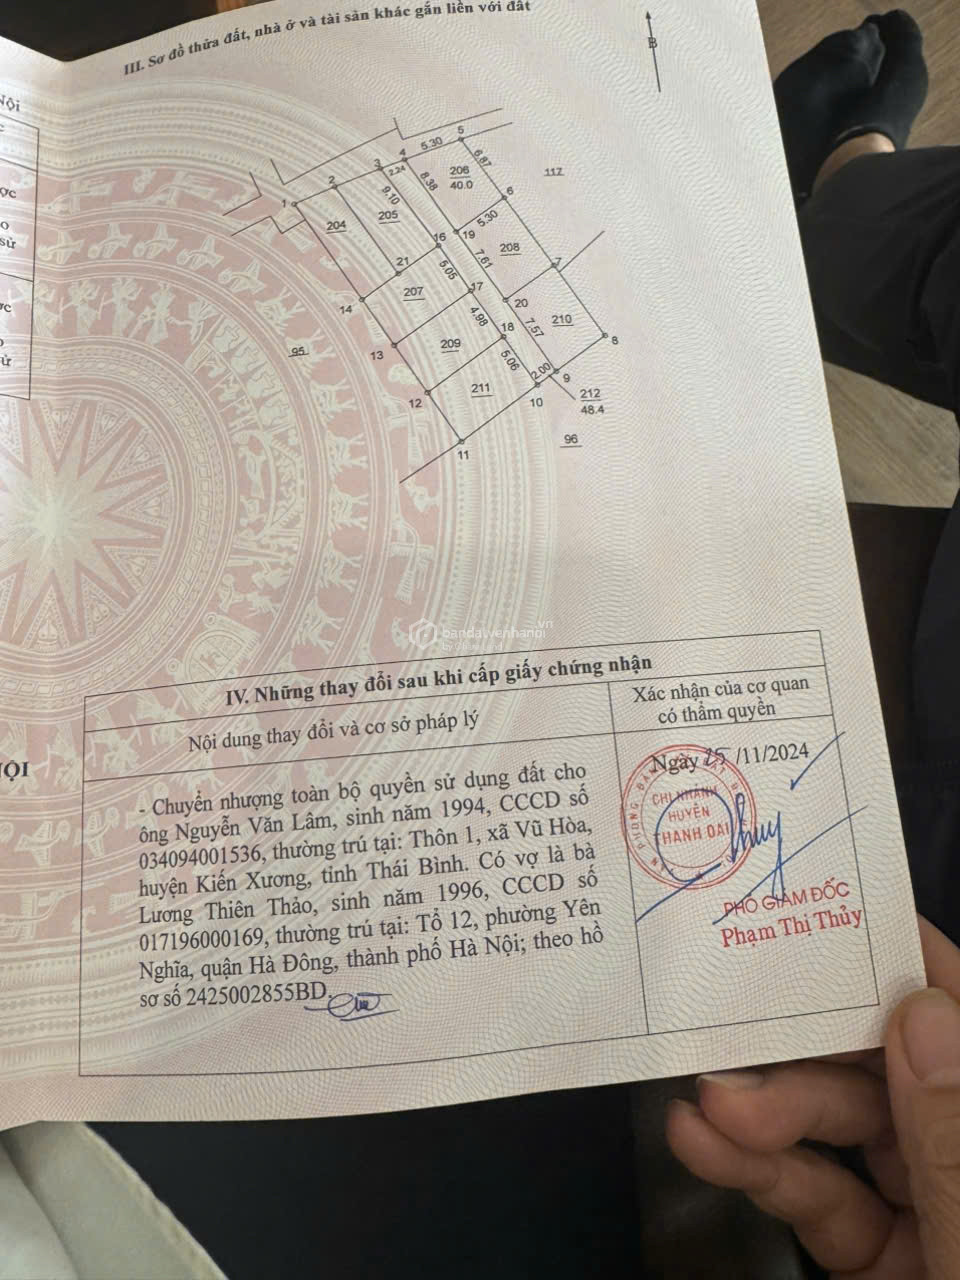 III. Sơ đồ thửa đất, nhà ở và tài sản khác gắn liền với đất
B
Nội
ợc
sử
ợc
ử
NỘI
1
2
3
4
5
6
7
8
9
10
11
12
13
14
16
17
18
19
20
21
5.30
2.24
6.87
8.38
9.10
5.30
5.05
7.61
4.98
7.57
5.06
2.00
204
205
206
40.0
207
208
209
210
211
212
48.4
95
96
117
bandatvenhanoi
.vn
IV. Những thay đổi sau khi cấp giấy chứng nhận
Nội dung thay đổi và cơ sở pháp lý
Xác nhận của cơ quan
có thẩm quyền
- Chuyển nhượng toàn bộ quyền sử dụng đất cho
ông Nguyễn Văn Lâm, sinh năm 1994, CCCD số
034094001536, thường trú tại: Thôn 1, xã Vũ Hòa,
huyện Kiến Xương, tỉnh Thái Bình. Có vợ là bà
Lương Thiên Thảo, sinh năm 1996, CCCD số
017196000169, thường trú tại: Tổ 12, phường Yên
Nghĩa, quận Hà Đông, thành phố Hà Nội; theo hồ
sơ số 2425002855BD.
Ngày 25 /11/2024
CHI NHÁNH
HUYỆN
THANH OAI
PHÓ GIÁM ĐỐC
Phạm Thị Thủy